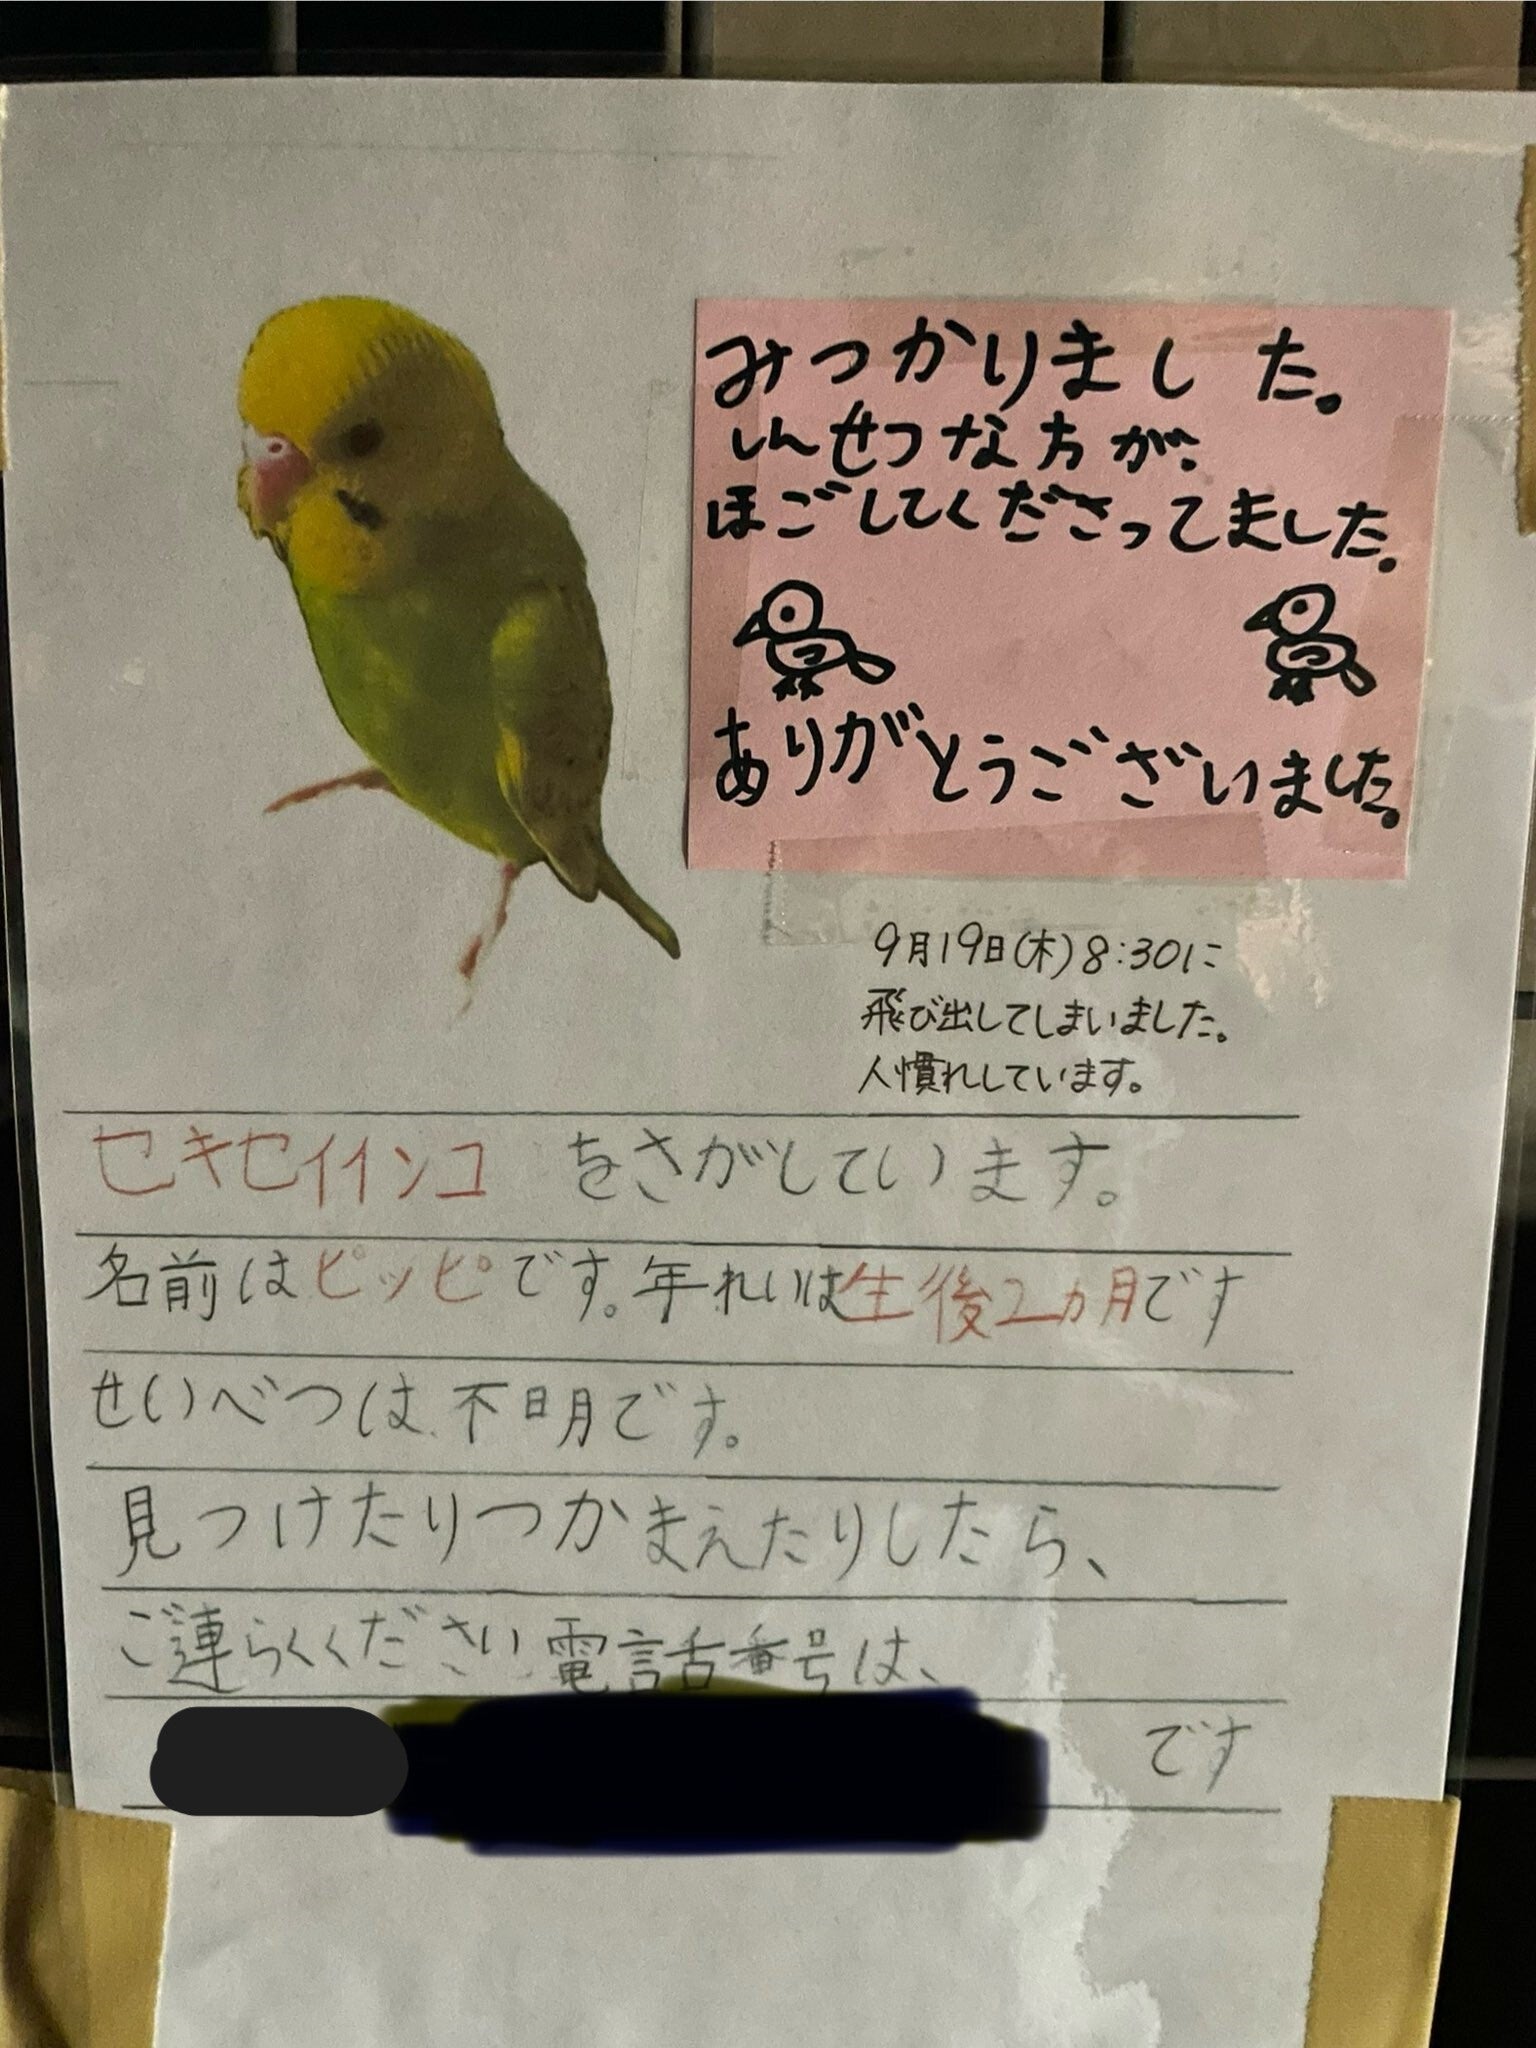 みつかりました。
しんせつな方が、
ほごしてくださってました。
ありがとうございました。
9月19日(木)8:30に
飛び出してしまいました。
人慣れしています。
セキセイインコ をさがしています。
名前はピッピです。年れいは生後2ヵ月です
せいべつは不明です。
見つけたりつかまえたりしたら、
ご連らくください電話番号は、
です